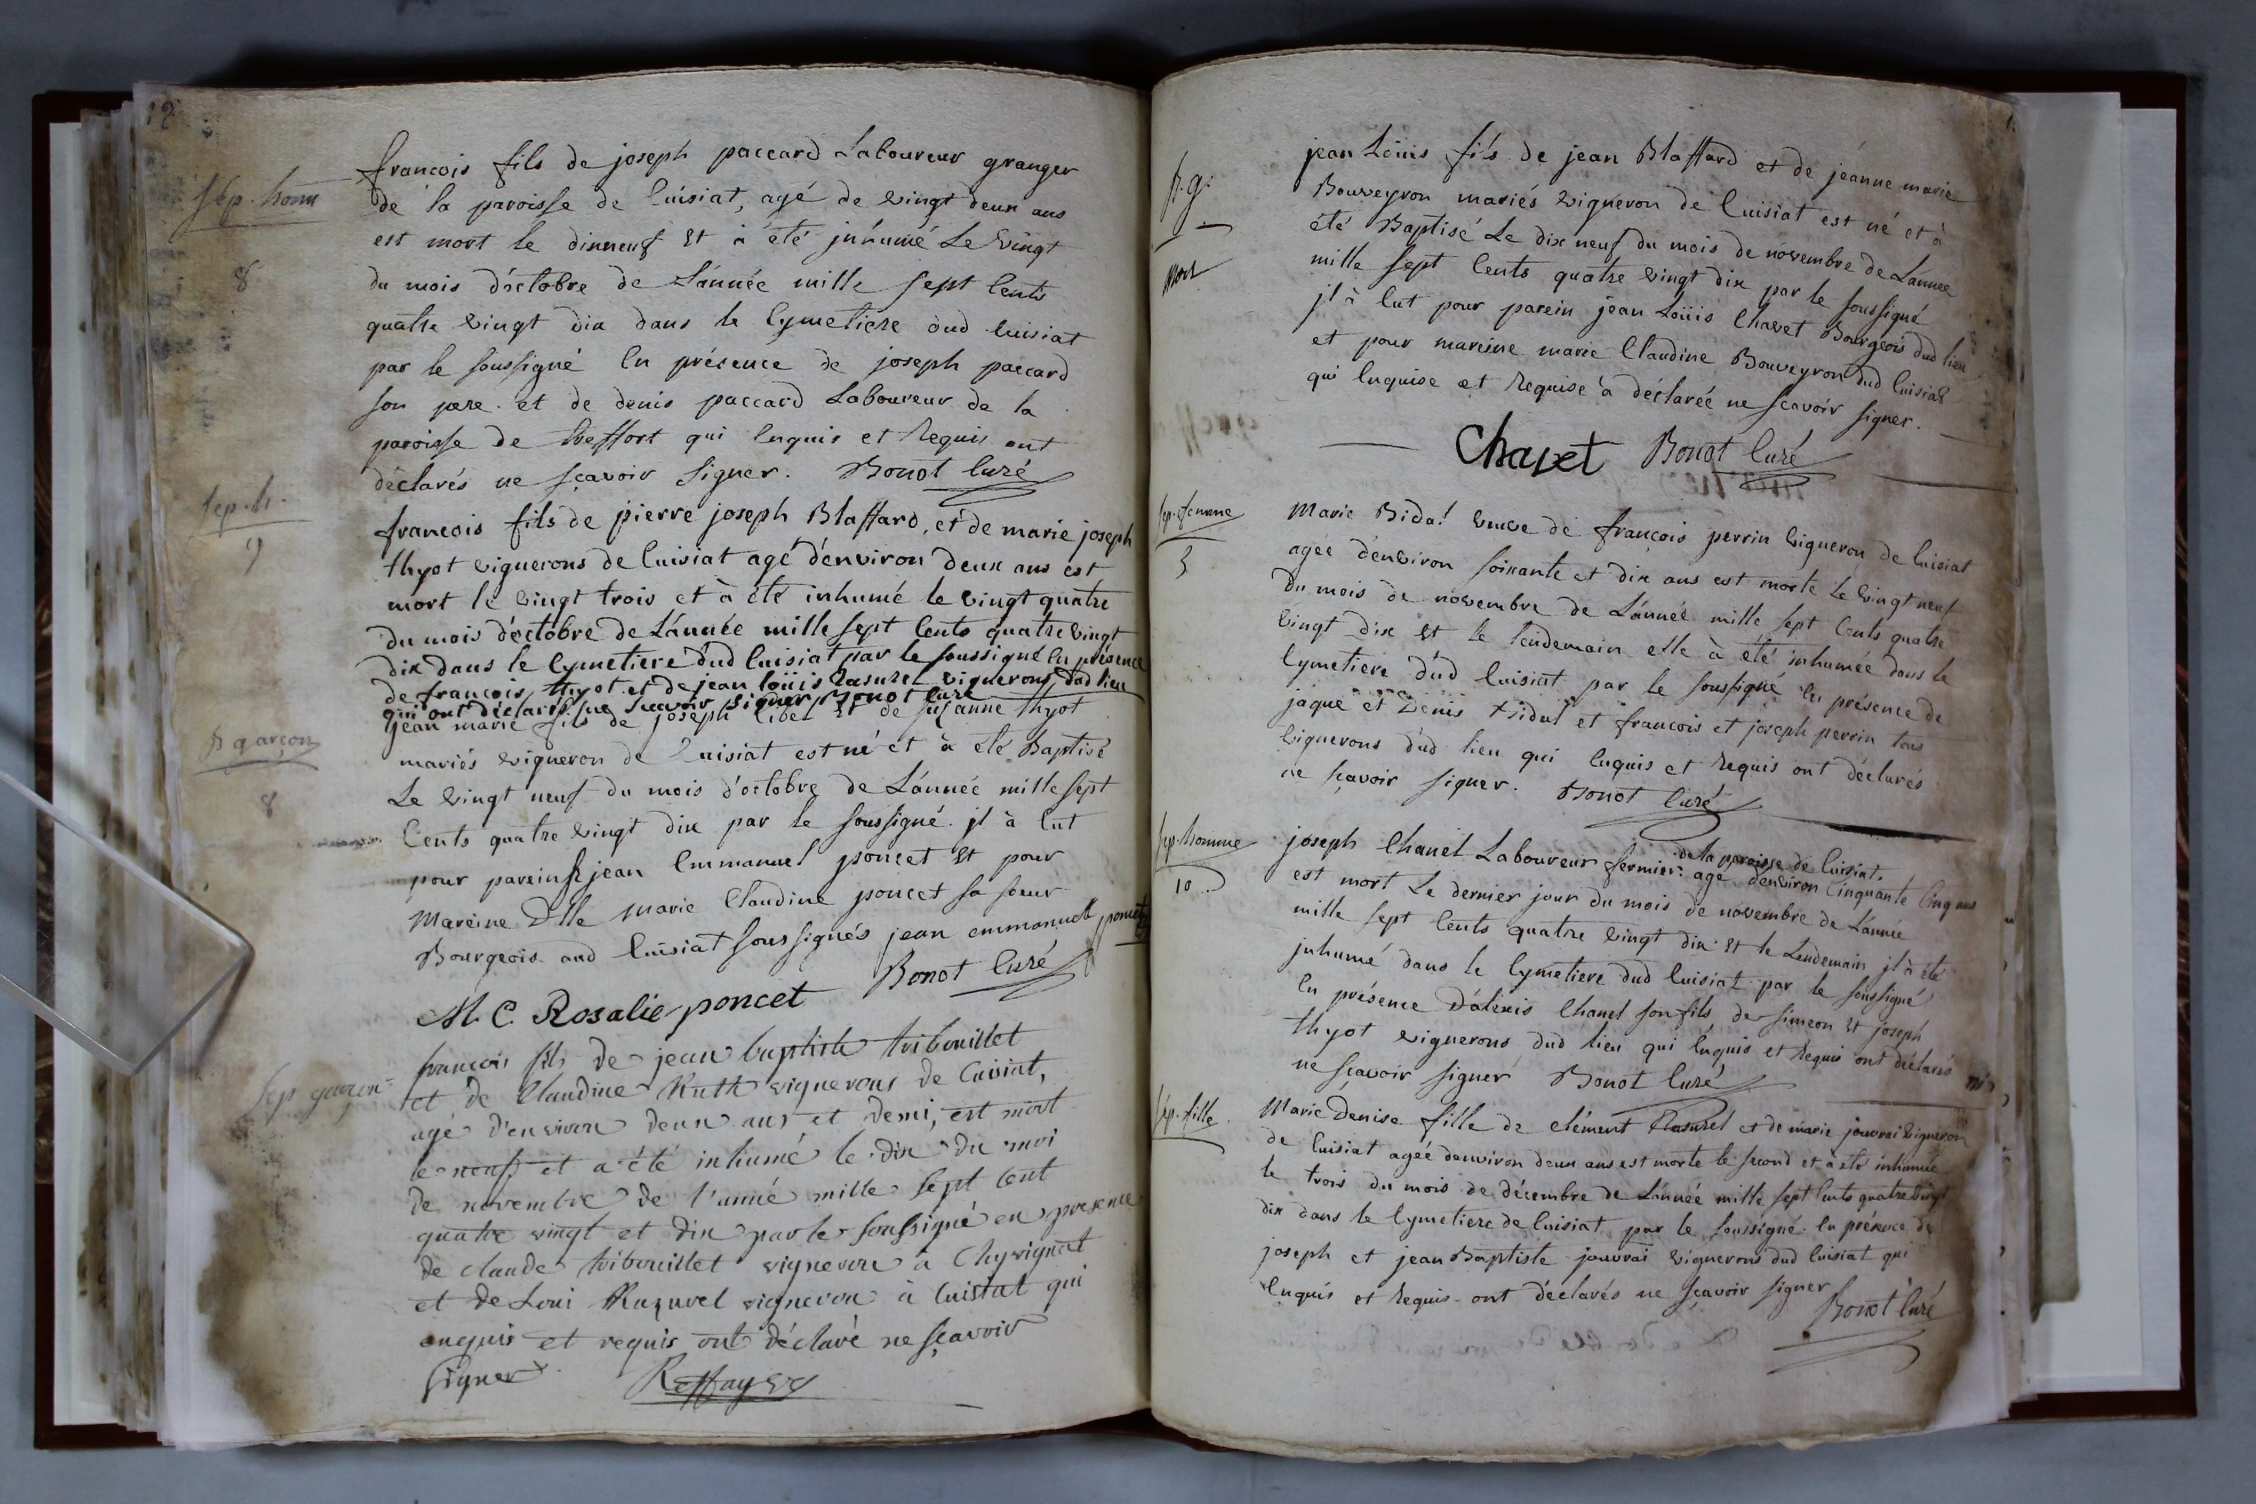 12
Sep. hom
8
francois fils de joseph paccard Laboureur granger
de la paroisse de Cuisiat, agé de vingt deux ans
est mort le dixneuf Et à été jnhumé Le vingt
du mois d'octobre de L'année mille sept Cents
quatre vingt dix dans le Cymetiere dud Cuisiat
par le soussigné En présence de joseph paccard
son pere et de denis paccard Laboureur de la
paroisse de treffort qui Enquis et Requis ont
déclarés ne sçavoir signer. Bonot Curé
sep. h.
9
francois fils de pierre joseph Blaffard, et de marie joseph
thyot vignerons de Cuisiat agé d'environ deux ans est
mort le vingt trois et à été inhumé le vingt quatre
du mois d'octobre de L'année mille sept Cents quatre vingt
dix dans le Cymetiere d'ud Cuisiat par le soussigné En présence
de francois thyot et de jean loüis Rasurel vignerons dud lieu
qui ont déclarés ne sçavoir signer Bonot Curé
B garçon
8
jean marie fils de joseph et de suzanne thyot
mariés vigneron de Cuisiat est né et à été Baptisé
Le vingt neuf du mois d'octobre de L'année mille sept
Cents quatre vingt dix par le soussigné. jl à Eut
pour parein sr jean Emmanuel poncet Et pour
Mareine Dlle marie Claudine poncet sa soeur
Bourgeois aud Cuisiat soussignés jean emmanuell poncet
Bonot Curé
M. C. Rosalie poncet
Sep garçon
francois fils de jean baptiste tribouillet
et de Claudine Ruth vignerons de Cuisiat,
agé d'environ deux ans et demi, est mort
le neuf et a été inhumé le dix du moi
de novembre de l'anné mille sept cent
quatre vingt et dix par le soussigné en presence
de claude tribouillet vigneron à Chevignat
et de Loui Razurel vigneron à Cuisiat qui
enquis et requis ont déclaré ne sçavoir
signer
Reffay
B. g.
mort
jean Loüis fils de jean Blaffard et de jéanne marie
Bouveyron mariés vigneron de Cuisiat est né et à
été Baptisé Le dix neuf du mois de novembre de L'année
mille sept Cents quatre vingt dix par le soussigné
jl à Eut pour parein jean Loüis Chavet Bourgeois dud lieu
et pour mareine marie Claudine Bouveyron dud Cuisiat
qui Enquise et Requise à déclarée ne sçavoir signer.
Chavet Bonot Curé
sep. femme
5
Marie Bidal veuve de françois perrin vigneron de Cuisiat
agée d'environ soixante et dix ans est morte Le vingt neuf
du mois de novembre de L'année mille sept Cents quatre
vingt dix Et le lendemain elle à été inhumée dans le
Cymetiere d'ud Cuisiat par le soussigné En présence de
jâque et Denis Bidal et francois et joseph perrin tous
vignerons d'ud lieu qui Enquis et Requis ont déclarés
ne sçavoir signer. Bonot Curé
sep. homme
10
de la paroisse de Cuisiat.
joseph Chanel Laboureur fermier agé d'environ Cinquante Cinq ans
est mort Le dernier jour du mois de novembre de L'année
mille sept Cents quatre vingt dix Et le Lendemain jl à été
jnhumé dans le Cymetiere dud Cuisiat par le soussigné
En présence D'alexis Chanel son fils de simeon Et joseph
thyot vignerons dud lieu qui Enquis et Requis ont déclarés
ne sçavoir signer Bonot Curé
sép. fille
Marie denise fille de clément Rasurel et de marie jouvrai vigneron
de Cuisiat agéé denviron deux ans est morte le second et à été inhumée
le trois du mois de décembre de L'année mille sept Cents quatre vingt
dix dans le Cymetiere de Cuisiat par le soussigné En présence de
joseph et jean Baptiste jouvrai vignerons dud Cuisiat qui
Enquis et Requis ont déclarés ne sçavoir signer
Bonot Curé